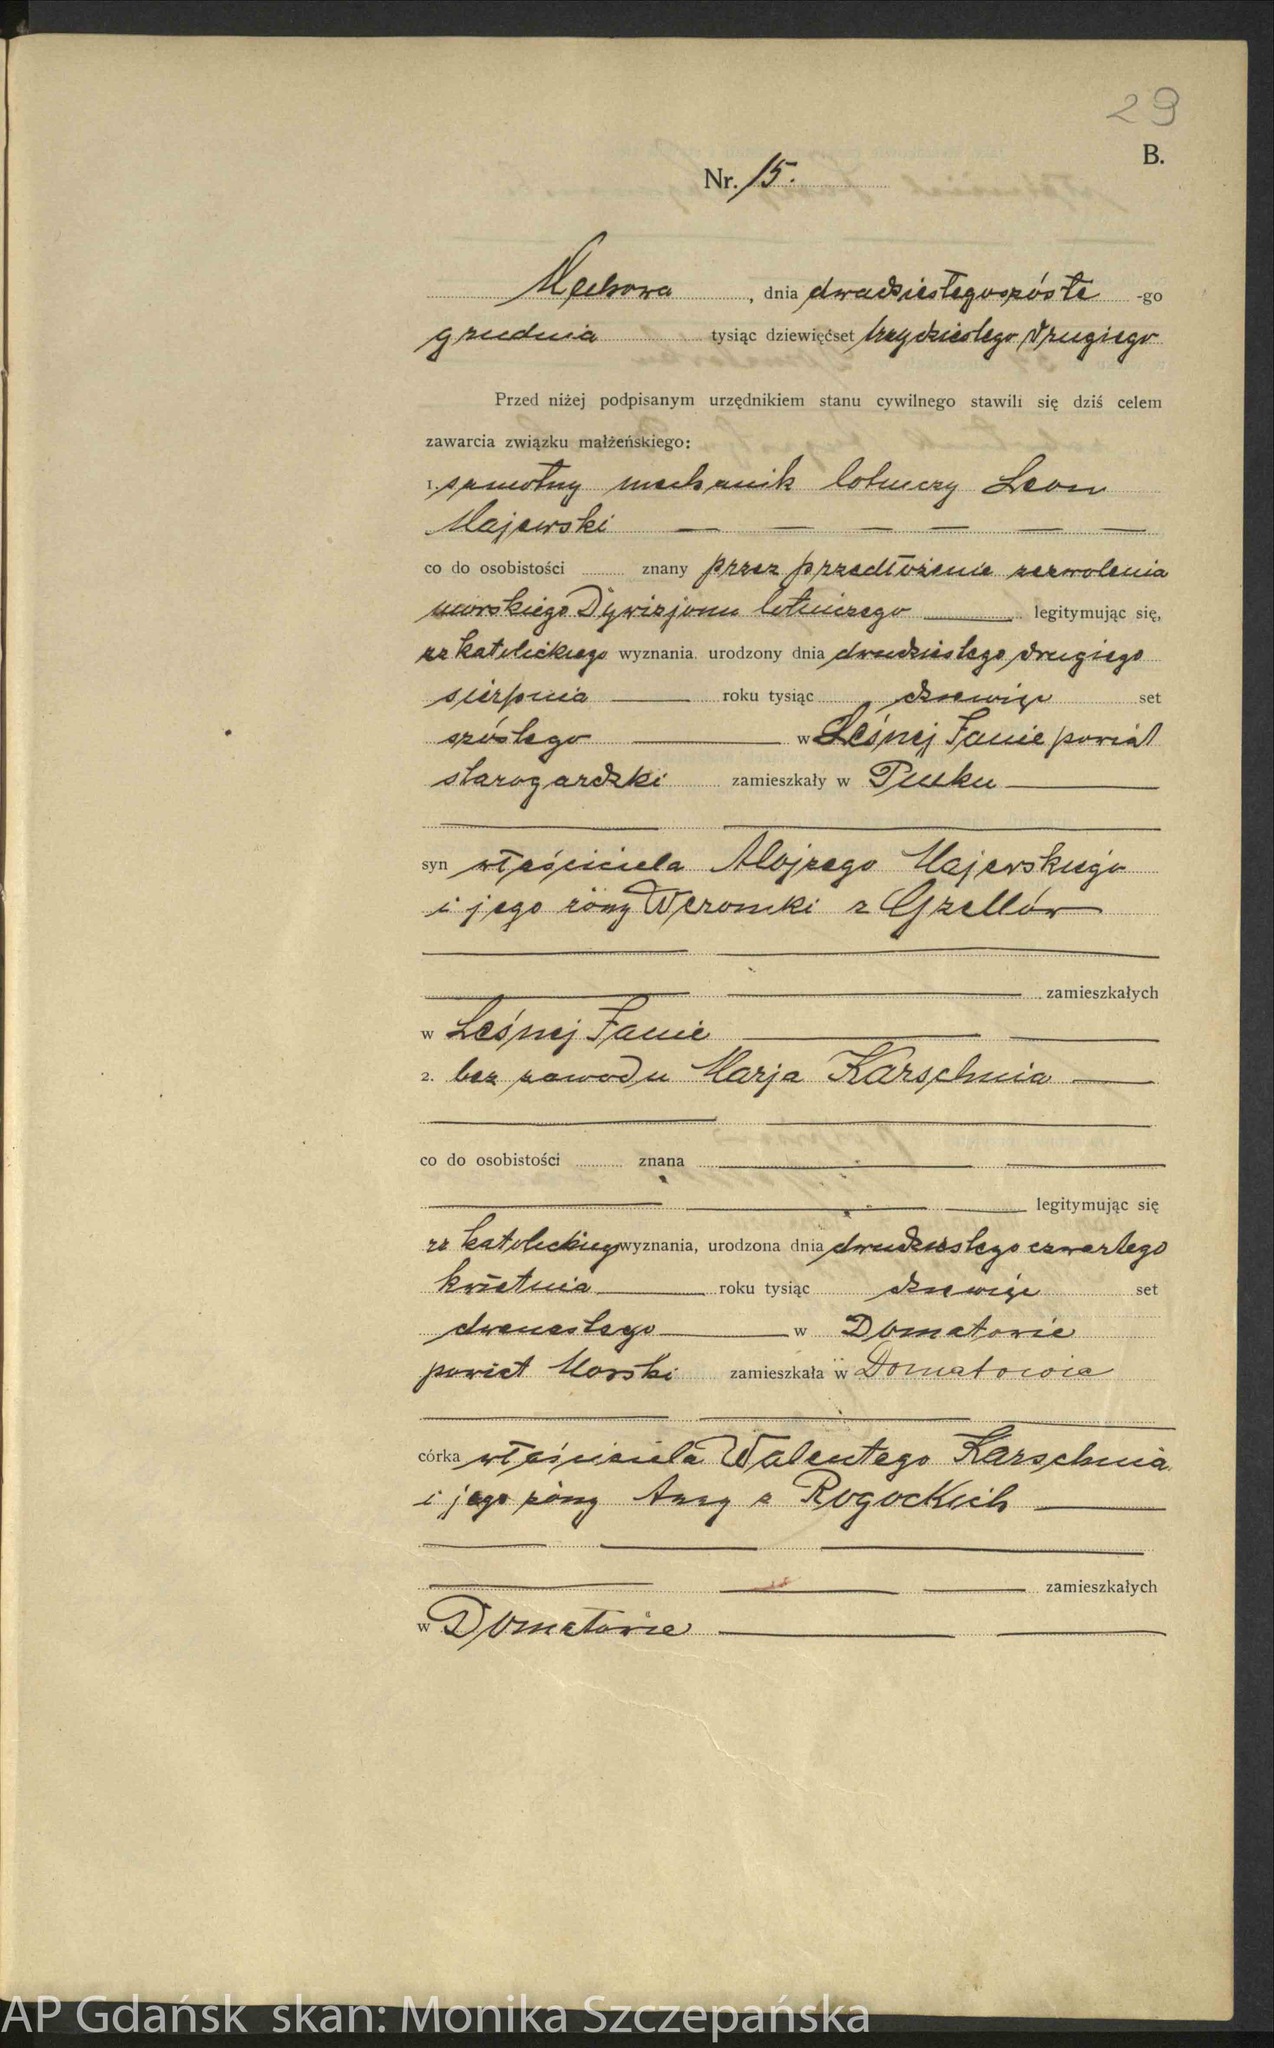 29
B.
Nr. 15.
Mechowa, dnia dwadziestegoszóste -go
grudnia tysiąc dziewięćset trzydziestego drugiego
Przed niżej podpisanym urzędnikiem stanu cywilnego stawili się dziś celem
zawarcia związku małżeńskiego:
1. samotny mechanik lotniczy Leon
Majewski
co do osobistości znany przez przedłożenie zezwolenia
morskiego Dywizjonu lotniczego legitymując się,
rz katolickiego wyznania urodzony dnia dwudziestego drugiego
sierpnia roku tysiąc dziewięć set
szóstego w Leśnej Janie powiat
starogardzki zamieszkały w Pucku
syn właściciela Alojzego Majewskiego
i jego żony Weroniki z Grzellów
zamieszkałych
w Leśnej Janie
2. bez zawodu Marja Karschnia
co do osobistości znana
legitymując się
rz katolickiego wyznania, urodzona dnia dwudziestego czwartego
kwietnia roku tysiąc dziewięć set
dwunastego w Domatowie
powiat Morski zamieszkała w Domatowie
córka właściciela Walentego Karschnia
i jego żony Anny z Rogockich
zamieszkałych
w Domatowie
AP Gdańsk skan: Monika Szczepańska